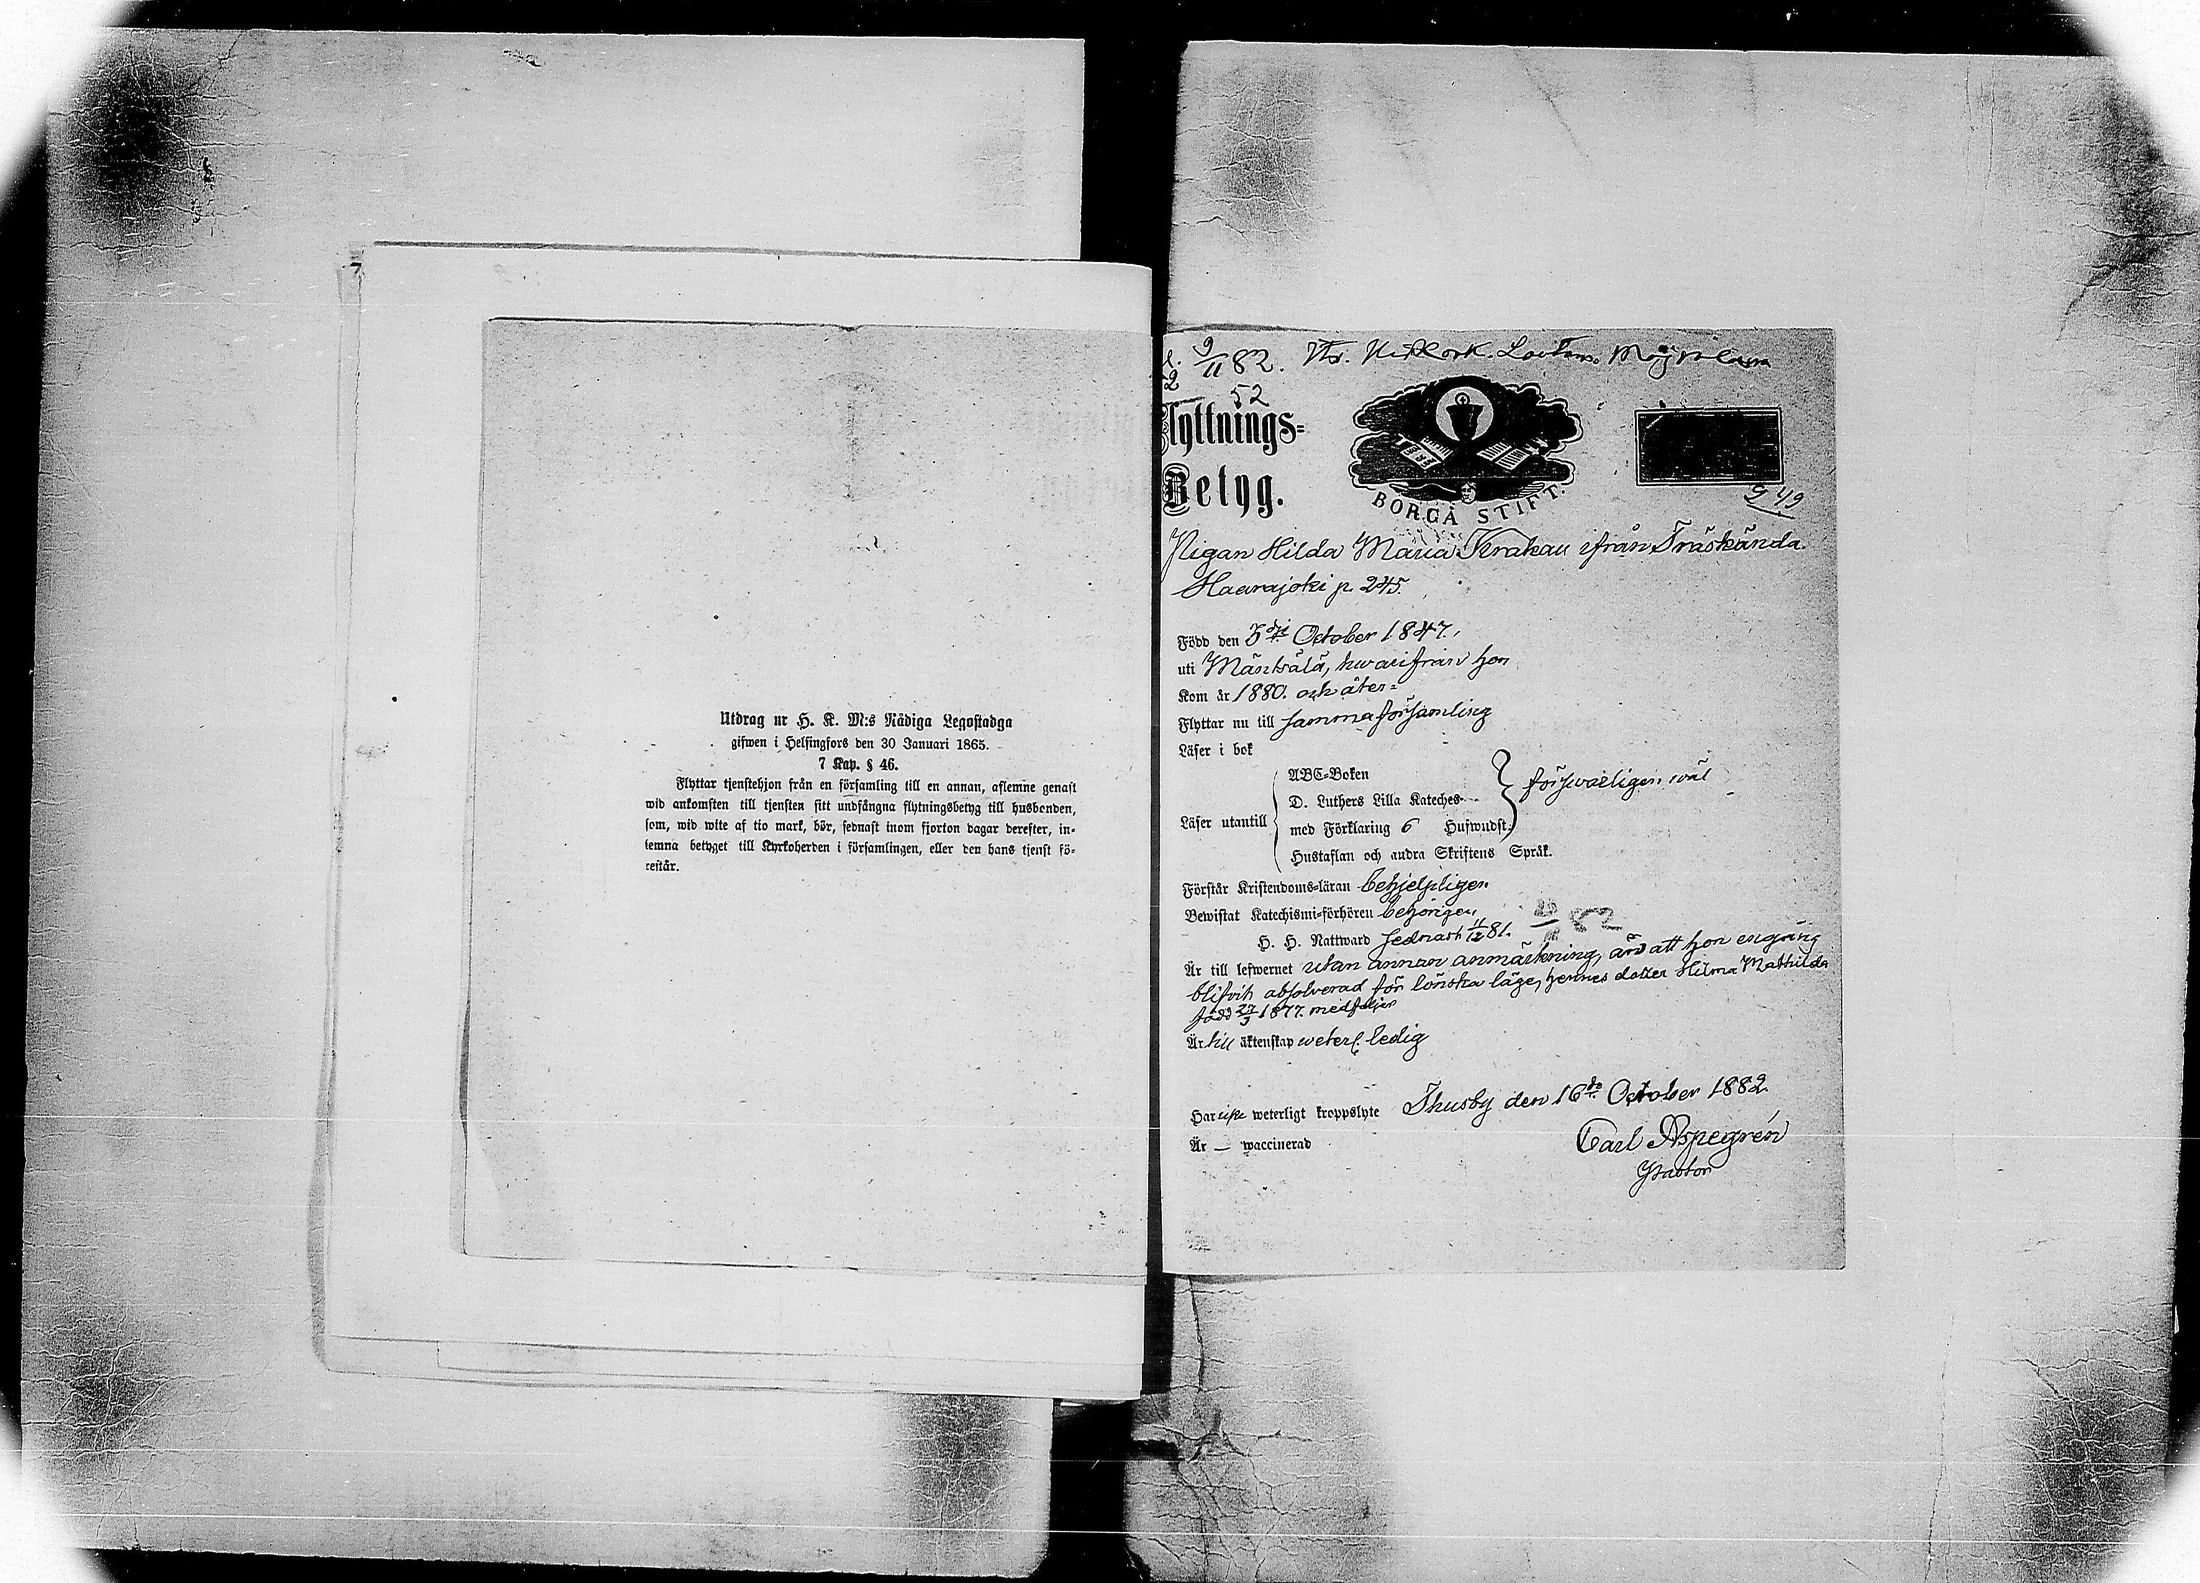 Utdrag ur H. K. M:s Nådiga Legostadga
gifwen i Helsingfors den 30 Januari 1865.
7 Kap. § 46.
Flyttar tjenstehjon från en församling till en annan, aflemne genast
wid ankomsten till tjensten sitt undfångna flytningsbetyg till husbonden,
som, wid wite af tio mark, bör, sednast inom fjorton dagar derefter, in-
lemna betyget till Kyrkoherden i församlingen, eller den hans tjenst fö-
restår.
9/11 82.
52
Flyttnings-
Betyg.
BORGÅ STIFT.
949
Pigan Hilda Maria Krakau ifrån Träskända.
Haarajoki p. 245.
Född den 5 October 1847.
uti Mäntsälä, hwarifrån hon
Kom år 1880. och åter-
Flyttar nu till samma församling
Läser i bok
Läser utantill
ABC-Boken
D. Luthers Lilla Kateches
med Förklaring 6 Hufwudst.
Hustaflan och andra Skriftens Språk.
försvarligen wäl
Förstår Kristendoms-läran behjelpligen
Bewistat Katechismi-förhören behörigen
H. H. Nattward sednast 11/12 81.
Är till lefwernet utan annan anmärkning, än att hon engång
blifvit absolverad för lönska läge, hennes dotter Hilma Mathilda
född 27/3 1877. medföljer
Är till äktenskap weterl. ledig
Har icke weterligt kroppslyte
Thusby den 16de October 1882.
Är — waccinerad
Carl Aspegrén
Pastor